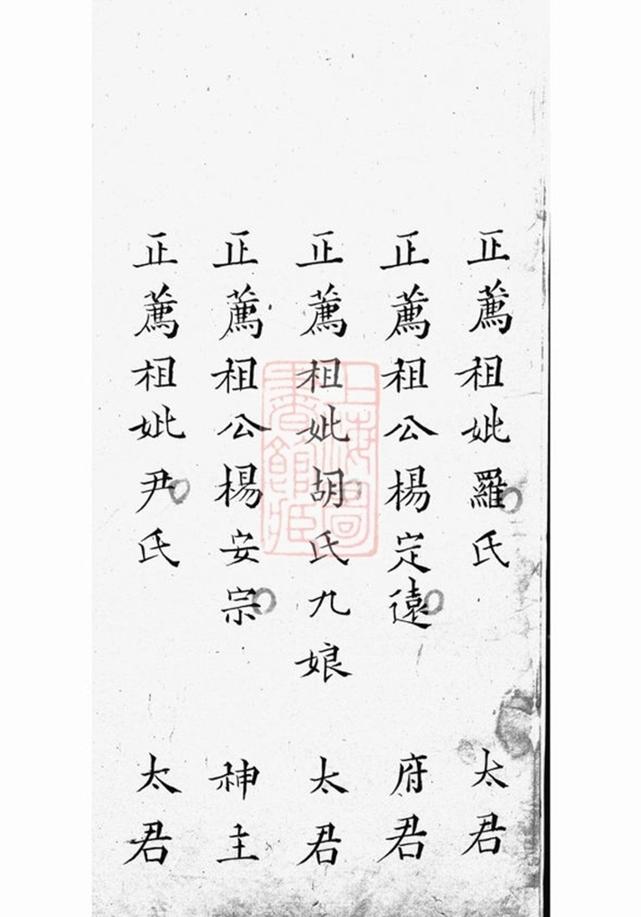 正薦祖妣羅氏 太君
正薦祖公楊定遠 府君
正薦祖妣胡氏九娘 太君
正薦祖公楊安宗 神主
正薦祖妣尹氏 太君
上海圖書館藏